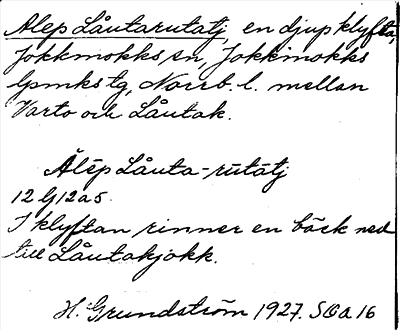 Alep Låutarutatj, en djup klyfta,
Jokkmokks sn, Jokkmokks
lpmks tg, Norrb. l. mellan
Varto och Låutak.
Ālēp Låuta-rūtātj
12 G 12 a 5.
I klyftan rinner en bäck ned
till Låutakjokk.
H. Grundström 1927. SOA 16